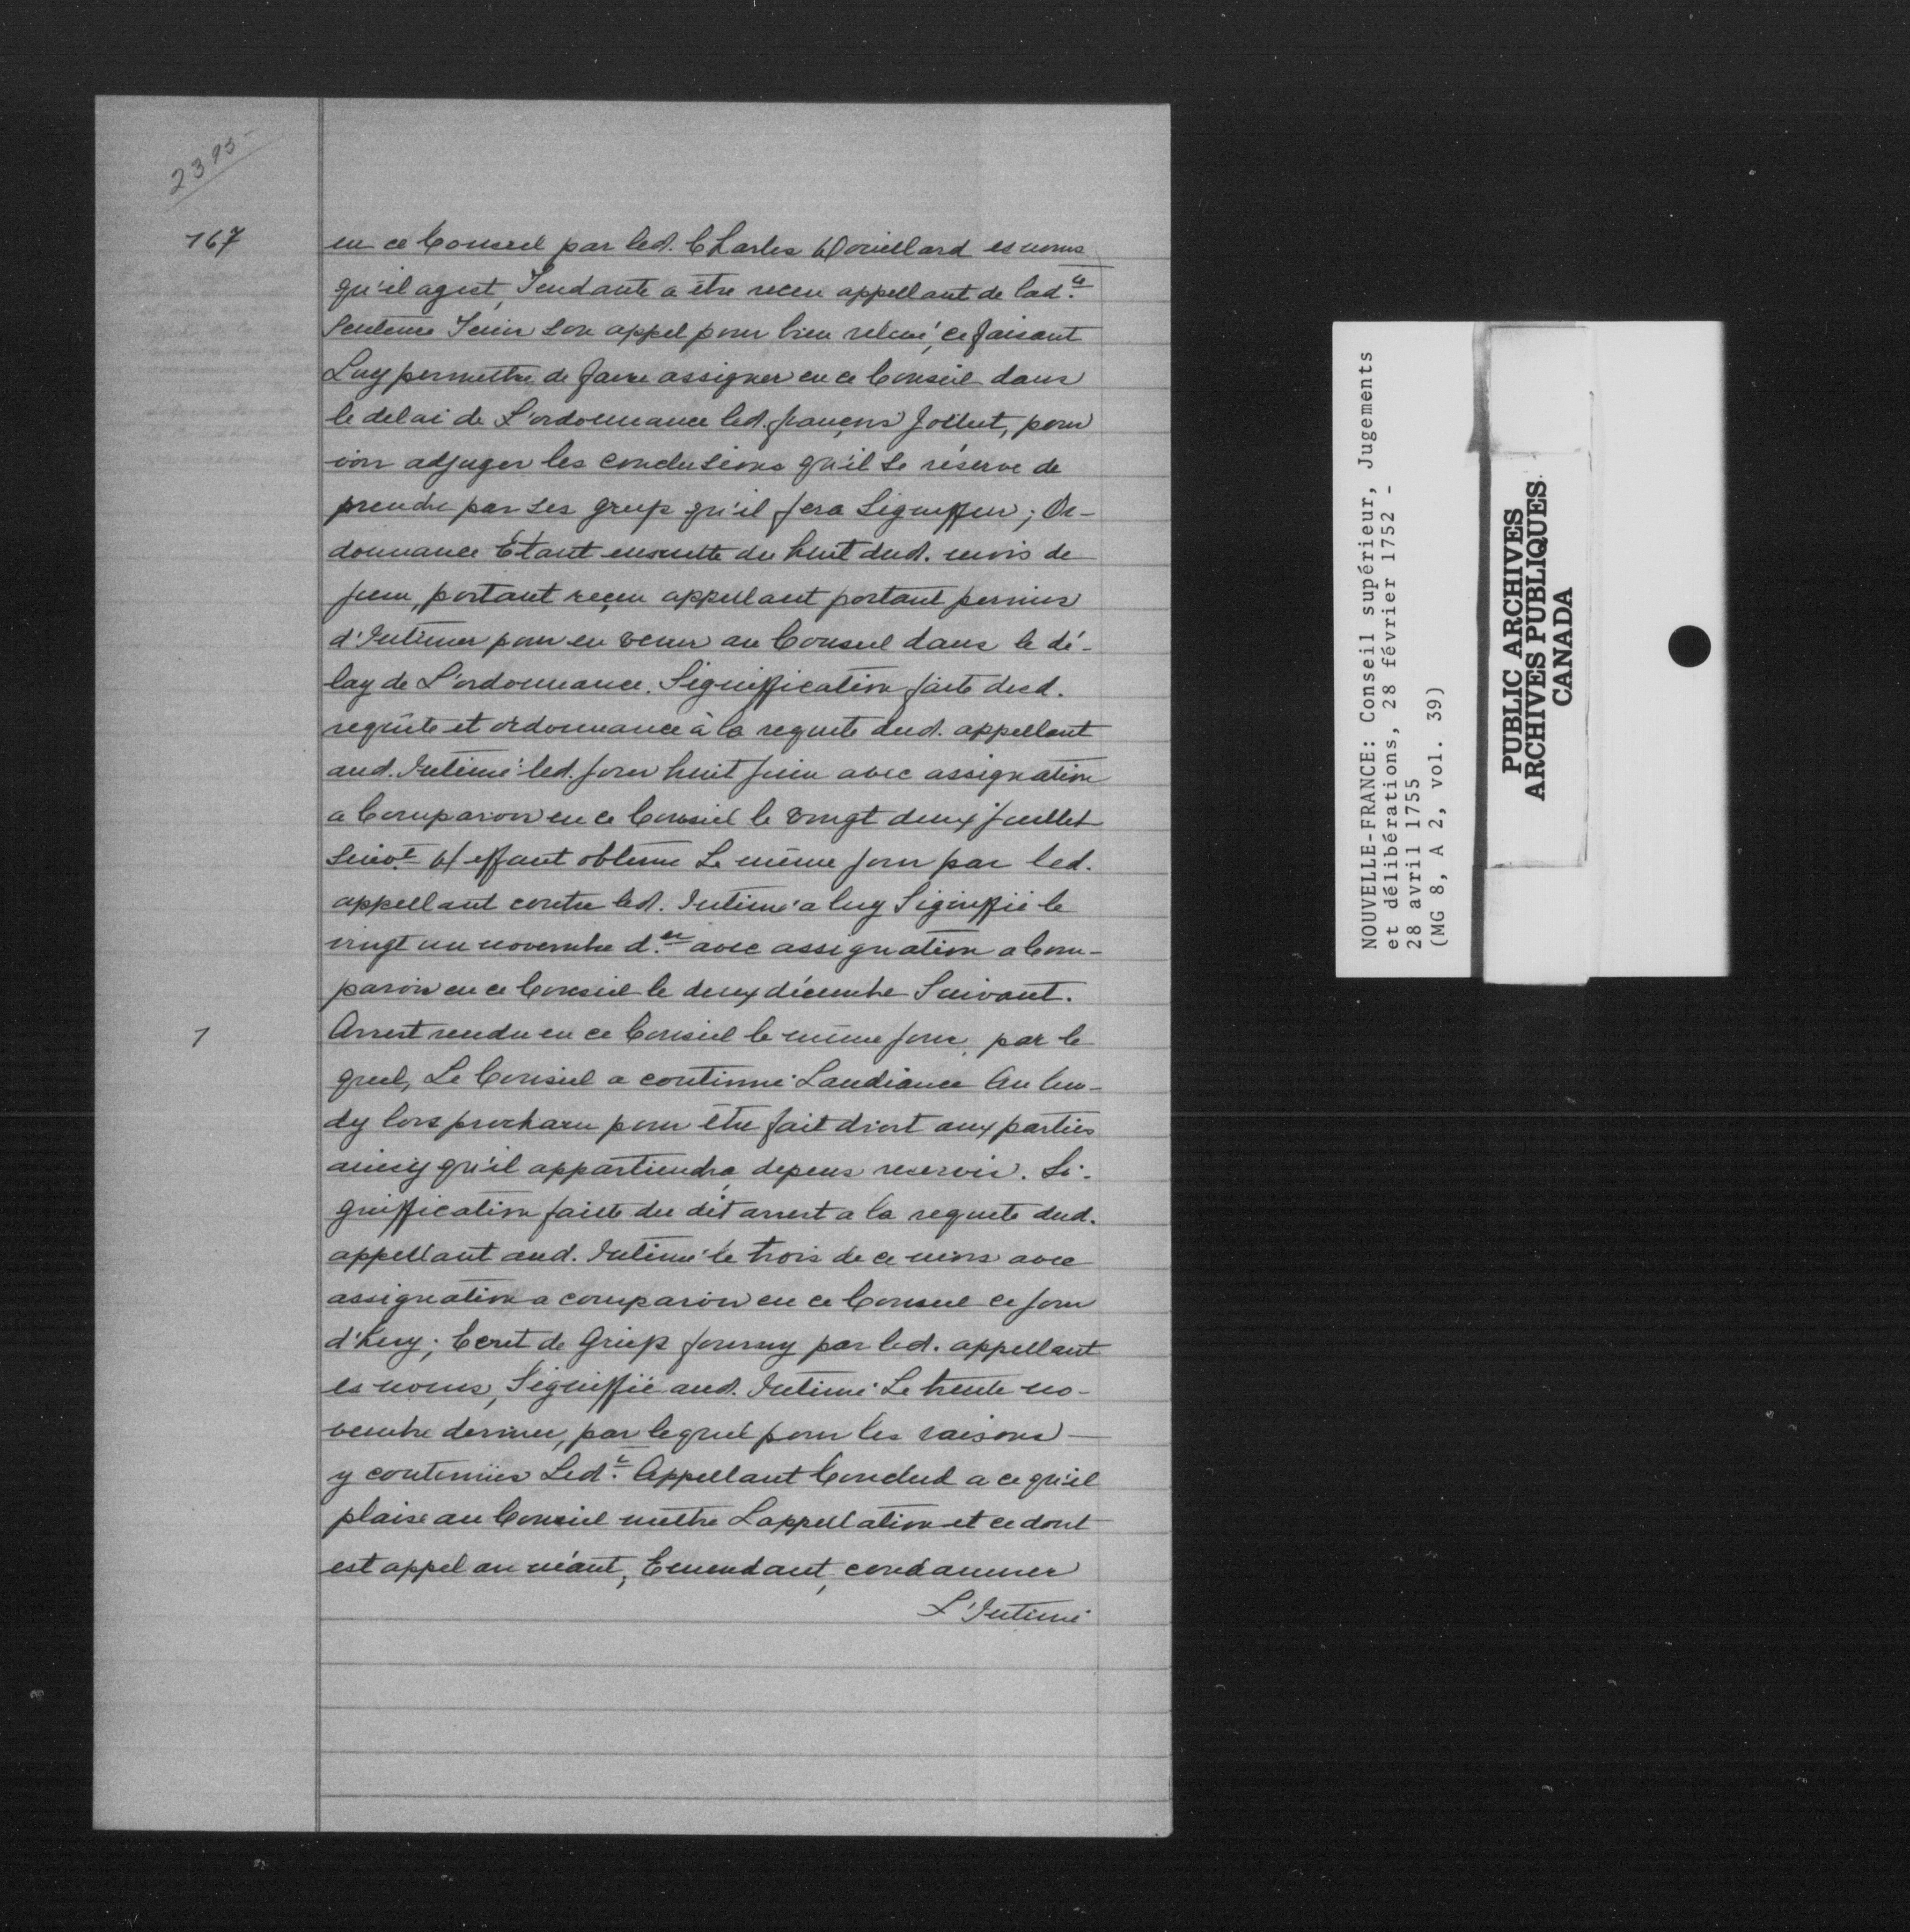 2395
167
en ce Conseil par led. Charles Douillard es noms
qu'il agist, Tendante a être receu appellant de lad.e
Sentence Tenir son appel pour bien relevé, ce faisant
Luy permettre de faire assigner en ce Conseil dans
le delai de L'ordonnance led. françois Jolliet, pour
voir adjuger les conclusions qu'il se réserve de
prendre par ses griefs qu'il fera Signiffier; Or-
donnance Étant ensuitte du huit dud. mois de
juin, portant reçeu appellant portant permis
d'Intimer pour en venir au Conseil dans le dé-
lay de L'ordonnance. Signiffication faite desd.
requête et ordonnance à la requete dud. appellant
aud. Intimé led. jour huit juin avec assignation
a Comparoir en ce Conseil le vingt deux juillet
Suivt. Deffaut obtenu Le même jour par led.
appellant contre led. Intimé a luy Signiffié le
vingt un novembre d.er avec assignation a Com-
paroir en ce Conseil le deux décembre Suivant.
1
Arrest rendu en ce Conseil le même jour, par le
quel, Le Conseil a continué Laudiance Au lun-
dy lors prochain pour être fait droit aux parties
ainsy qu'il appartiendra, depens reservés. Si-
gniffication faite du dit arrest a la requete dud.
appellant aud. Intimé le trois de ce mois avec
assignation a comparoir en ce Conseil ce jour
d'huy; Ecrit de Griefs fourny par led. appellant
es noms, Signiffié aud. Intimé Le trente no-
vembre dernier, par lequel pour les raisons
y contenües Led.t Appellant Conclud a ce qu'il
plaise au Conseil mettre Lappellation et ce dont
est appel au néant, Emendant, condamner
L'Intimé
NOUVELLE-FRANCE: Conseil supérieur, Jugements
et délibérations, 28 février 1752 -
28 avril 1755
(MG 8, A 2, vol. 39)
PUBLIC ARCHIVES
ARCHIVES PUBLIQUES
CANADA